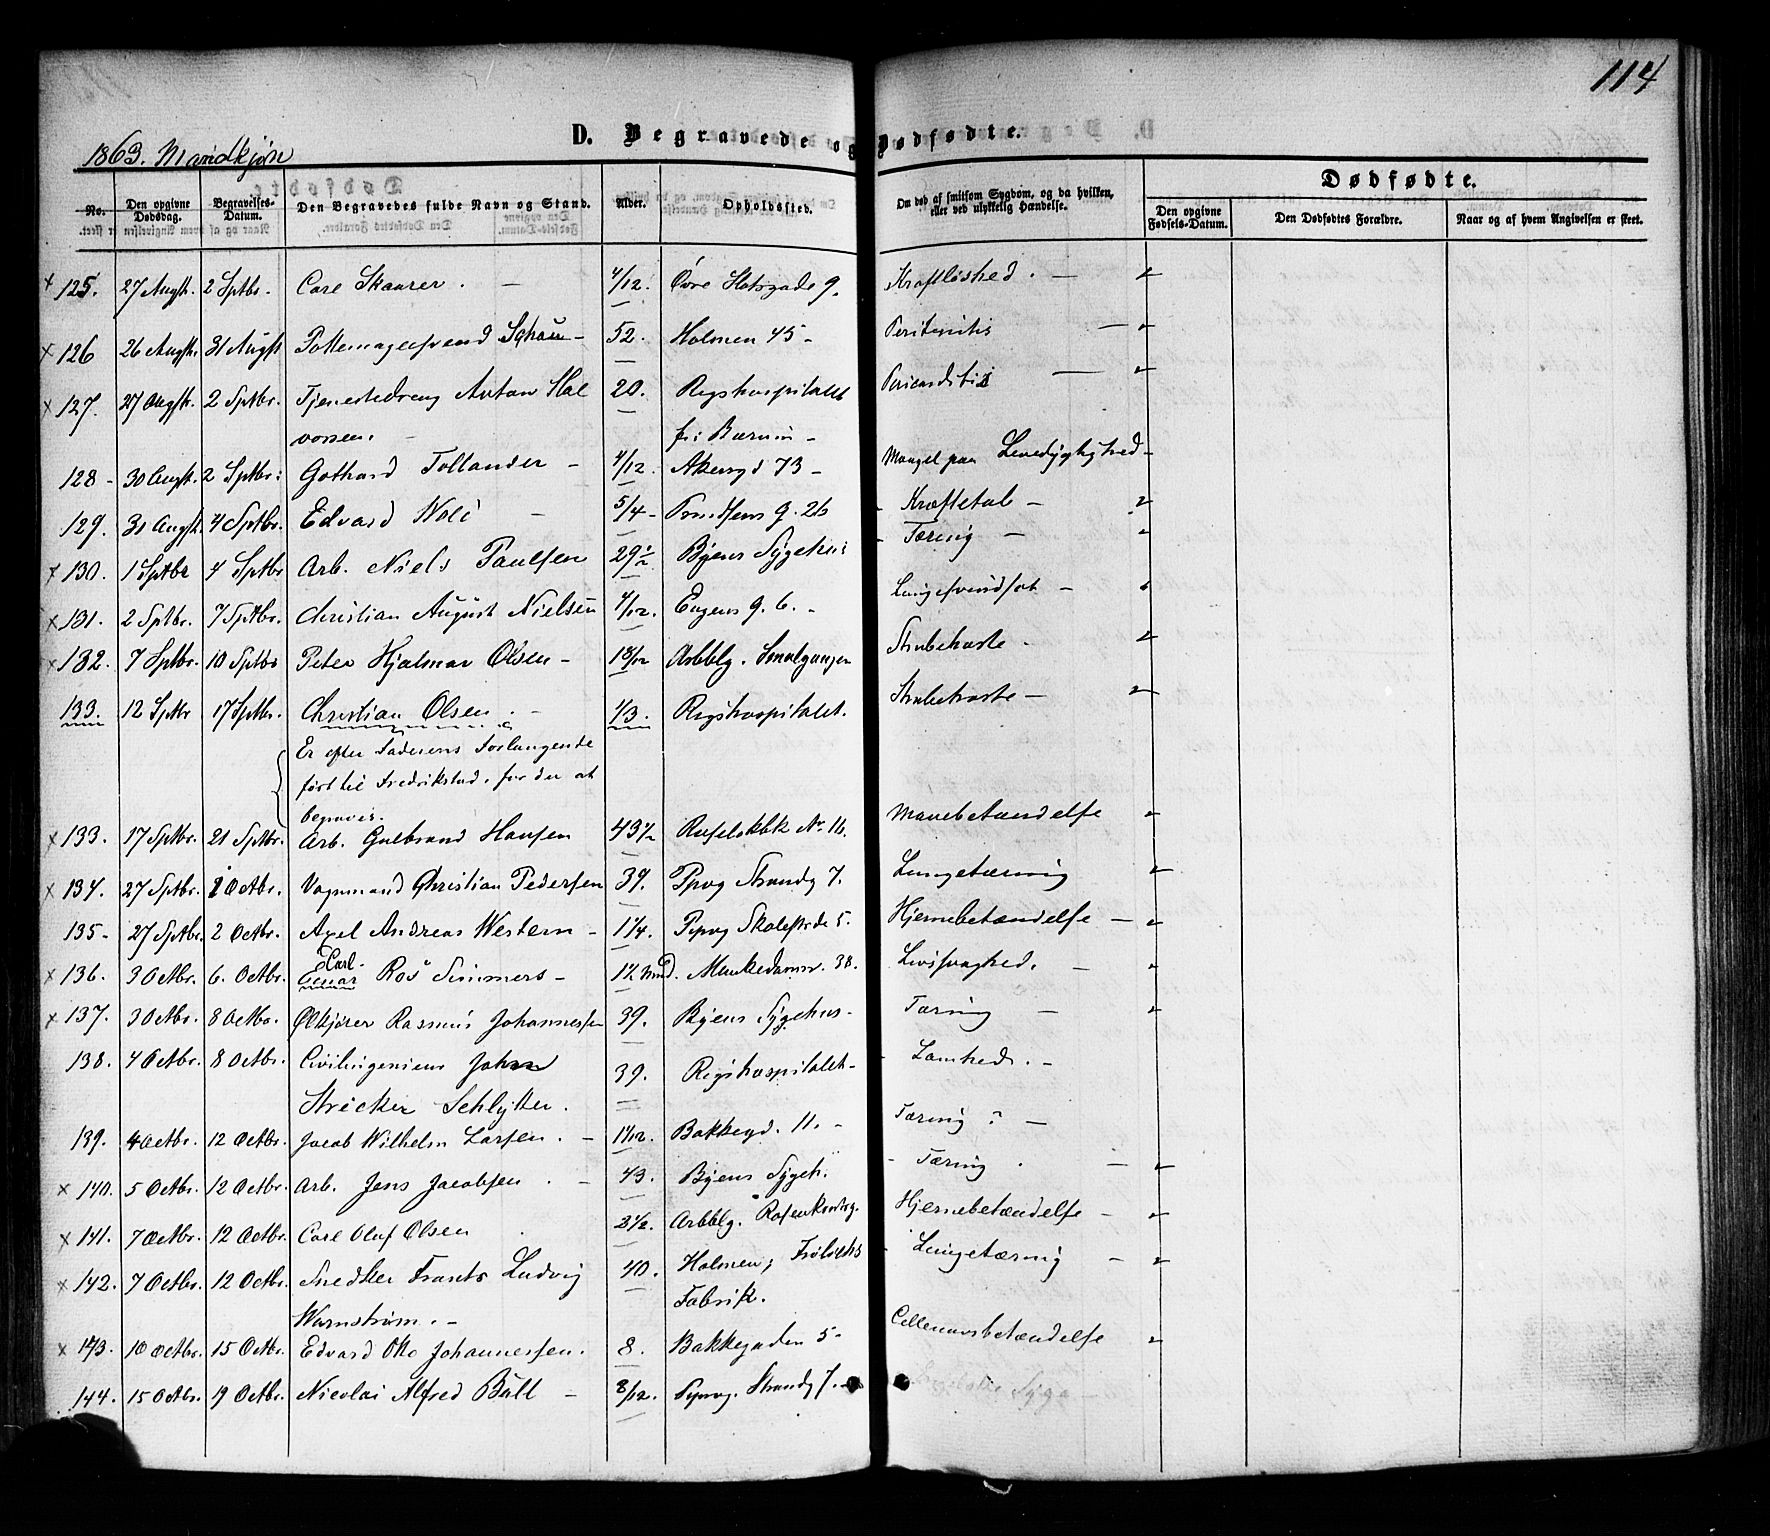 114
D. Begravede og Dødfødte.
1863. Mandkjøn
No. Den opgivne Dødsdag. Begravelses-Datum. Den Begravedes fulde Navn og Stand. Alder. Opholdssted. Om død af smitsom Sygdom, og da hvilken, eller ved ulykkelig Hændelse. Dødfødte.
Den opgivne Fødsels-Datum. Den Dødfødtes Forældre. Naar og af hvem Angivelsen er skeet.
x 125. 27 Augst. 2 Sptbr. Carl Skaarer. - 4/12. Øvre Slotsgade 9. Kraftløshed. -
x 126 26 Augst. 31 Augst Pottemagersvend Schou - 52. Holmen 45 - Peritonitis -
x 127. 27 Augst. 2 Sptbr. Tjenestedreng Anton Hal 20. Rigshospitalet Pericarditis -
vorsen. - fr: Bærum -
128 - 30 Augst. 2 Sptbr: Gothard Tollander - 4/12. Akersgd 73 - Mangel paa Levedygtighed -
129. 31 Augst. 4 Sptbr. Edvard - 5/4 - g. 26 Kræftetab -
x 130. 1 Sptbr 4 Sptbr Arb. Niels Paulsen 29 1/2 Byens Sygehus - Tæring -
x 131. 2 Sptbr. 7 Sptbr. Christian August Nielsen 4/12. Enzens g. 6. - Lungesvindsot -
x 132. 7 Sptbr. 10 Sptbr Peter Hjalmar Olsen - 18/12 Arbblg. Smalgangen Strubehoste -
133. 12 Sptbr 17 Sptbr. Christian Olsen. - 1/3. Rigshospitalet. Strubehoste -
Er efter Faderens Forlangende
ført til Fredrikstad, for der at
begraves.
x 133. 17 Sptbr. 21 Sptbr. Arb. Gulbrand Hansen 43 1/2 Ruseløkbk No. 16. Mavebetændelse
x 134. 27 Sptbr. 1 Octbr. Vognmand Christian Pedersen 39. Ppvg Strandg 7. Lungetæring
135 - 27 Sptbr. 2 Octbr. Axel Andreas Western - 1 1/4. Pipvg Skolestrde 5. Hjernebetændelse -
Carl -
x 136. 3 Octbr. 6. Octbr. Einar Ros Simmers - 1 1/2 Mnd. Munkedamv. 38. Livssvaghed. -
x 137. 3 Octbr. 8 Octbr. Ølkjører Rasmus Johannessen 39. Byens Sygehus - Tæring -
138. 4 Octbr. 8 Octbr. Civilingenieur Johan 39. Rigshospitalet - Lamhed. -
Stricker Schlytter.
139. 4 Octbr. 12 Octbr. Jacob Wilhelm Larsen. - 1 1/12. Bakkegd. 11. - Tæring ? -
x 140. 5 Octbr. 12 Octbr. Arb. Jens Jacobsen. - 43. Byens Sygeh. - Tæring. -
x 141. 7 Octbr. 12 Octbr. Carl Oluf Olsen. 3 1/2. Arbblg. Rosenkrdtzg. Hjernebetændelse -
x 142. 7 Octbr. 12 Octbr. Snedker Frants Ludvig 40. Holmen, Frölichs - Lungetæring -
Warnstrøm. - Fabrik.
x 143. 10 Octbr. 15 Octbr. Edvard Otto Johannessen. 8. Bakkegaden 5 - Cellevævsbetændelse
144. 15 Octbr. 19 Octbr. Nicolai Alfred Bull - 8/12. Pipvg. Strandg 7. - Engelske Syge